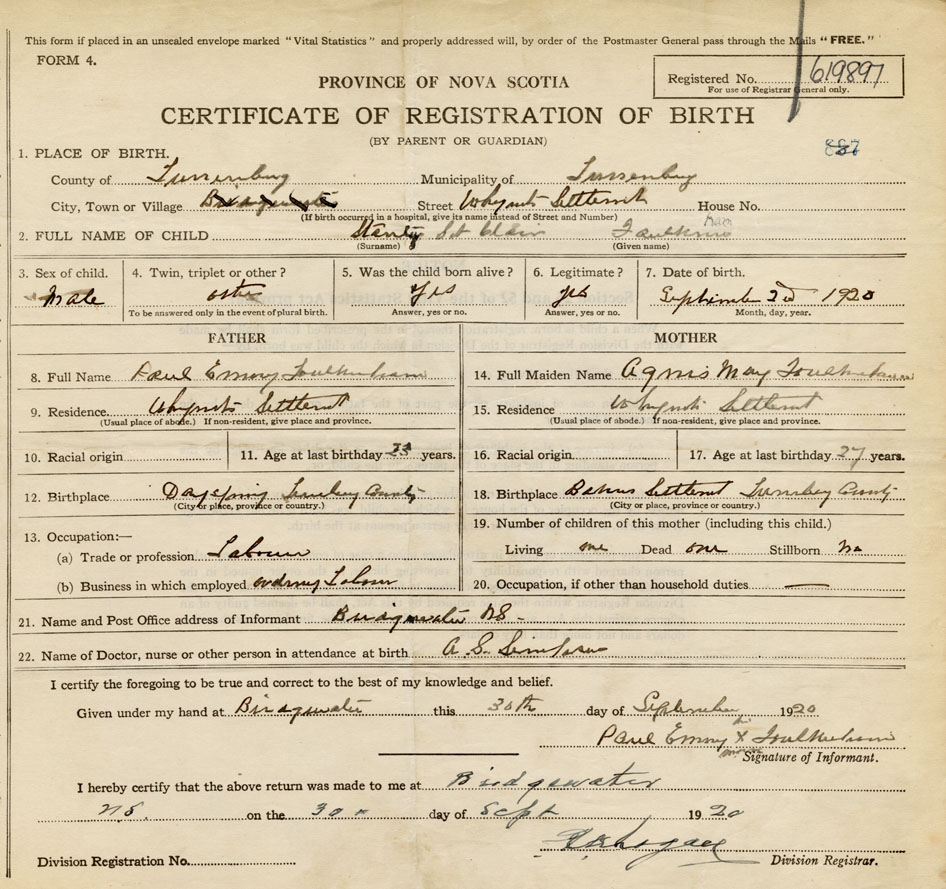 This form if placed in an unsealed envelope marked "Vital Statistics" and properly addressed will, by order of the Postmaster General pass through the Mails "FREE."
FORM 4.
PROVINCE OF NOVA SCOTIA
Registered No. 619897
For use of Registrar General only.
CERTIFICATE OF REGISTRATION OF BIRTH
(BY PARENT OR GUARDIAN)
1. PLACE OF BIRTH.
County of Lunenburg Municipality of Lunenburg
City, Town or Village Street Whynots Settlement House No.
(If birth occurred in a hospital, give its name instead of Street and Number)
2. FULL NAME OF CHILD Stanley St Clair
(Surname) (Given name)
3. Sex of child. 4. Twin, triplet or other? 5. Was the child born alive? 6. Legitimate? 7. Date of birth.
Male Yes yes September 2nd 1920
To be answered only in the event of plural birth. Answer, yes or no. Answer, yes or no. Month, day, year.
FATHER MOTHER
8. Full Name Paul Emmy Foulkenham 14. Full Maiden Name Agnis May
9. Residence Whynots Settlemt 15. Residence Whynots Settlemt
(Usual place of abode.) If non-resident, give place and province. (Usual place of abode.) If non-resident, give place and province.
10. Racial origin 11. Age at last birthday 23 years. 16. Racial origin 17. Age at last birthday 27 years.
12. Birthplace County 18. Birthplace Settlemt County
(City or place, province or country.) (City or place, province or country.)
19. Number of children of this mother (including this child.)
13. Occupation:—
(a) Trade or profession Labour Living one Dead one Stillborn no
(b) Business in which employed Labour 20. Occupation, if other than household duties —
21. Name and Post Office address of Informant Bridgewater NS -
22. Name of Doctor, nurse or other person in attendance at birth A. S.
I certify the foregoing to be true and correct to the best of my knowledge and belief.
Given under my hand at Bridgwater this 30th day of September 1920
his
Paul Emmy X Foulkenham
Signature of Informant.
I hereby certify that the above return was made to me at Bridgewater
N.S. on the 30 day of Sept 1920
Division Registration No. Division Registrar.